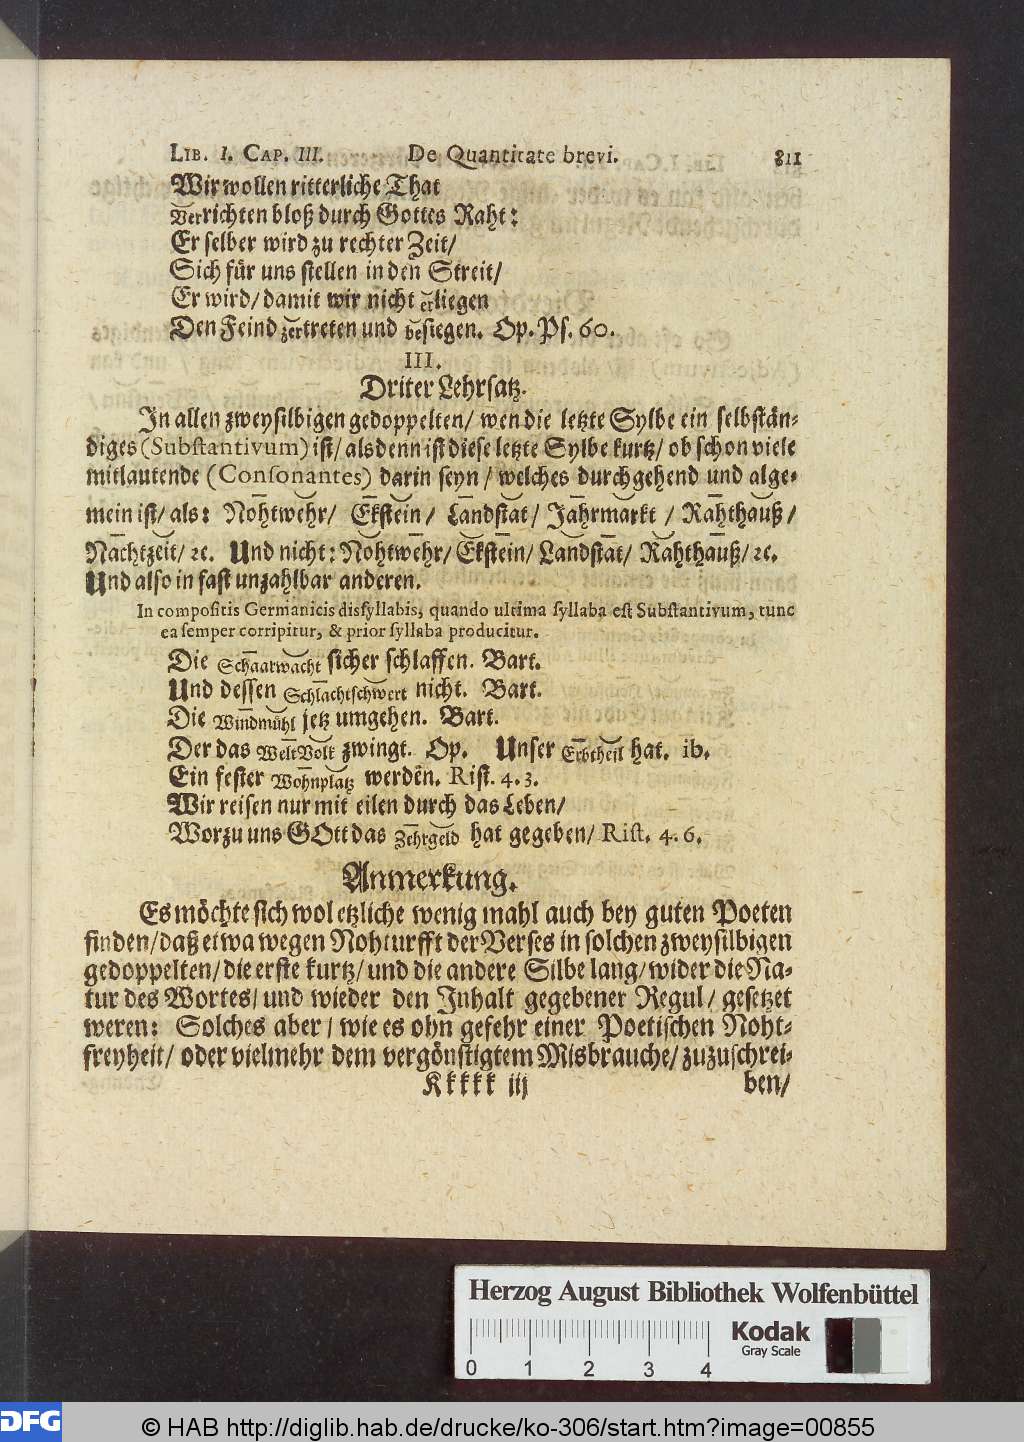 LIB. I. CAP. III. De Quantitate brevi. 811
Wir wollen ritterliche That
Verrichten bloß durch Gottes Raht:
Er selber wird zu rechter Zeit/
Sich für uns stellen in den Streit/
Er wird/ damit wir nicht erliegen
Den Feind zertreten und besiegen. Op. Ps. 60.
III.
Driter Lehrsatz.
In allen zweysilbigen gedoppelten/ wen die letzte Sylbe ein selbstän-
diges (Substantivum) ist/ alsdenn ist diese letzte Sylbe kurtz/ ob schon viele
mitlautende (Consonantes) darin seyn/ welches durchgehend und alge-
mein ist/ als: Nohtwehr/ Ekstein/ Landstat/ Jahrmarkt/ Rahthauß/
Nachtzeit/ ꝛc. Und nicht: Nohtwehr/ Ekstein/ Landstat/ Rahthauß/ ꝛc.
Und also in fast unzahlbar anderen.
In compositis Germanicis dissyllabis, quando ultima syllaba est Substantivum, tunc
ea semper corripitur, & prior syllaba producitur.
Die Schaarwacht sicher schlaffen. Bart.
Und dessen Schlachtschwert nicht. Bart.
Die Windmühl jetz umgehen. Bart.
Der das WeltVolk zwingt. Op. Unser Erbtheil hat. ib.
Ein fester Wohnplatz werden. Rist. 4. 3.
Wir reisen nur mit eilen durch das Leben/
Worzu uns GOtt das Zehrgeld hat gegeben/ Rist. 4. 6.
Anmerkung.
Es möchte sich wol etzliche wenig mahl auch bey guten Poeten
finden/ daß etwa wegen Nohturfft der Verses in solchen zweysilbigen
gedoppelten/ die erste kurtz/ und die andere Silbe lang/ wider die Na-
tur des Wortes/ und wieder den Inhalt gegebener Regul/ gesetzet
weren: Solches aber/ wie es ohn gefehr einer Poetischen Noht-
freyheit/ oder vielmehr dem vergönstigtem Misbrauche/ zuzuschrei-
Kkkkk iij ben/
Herzog August Bibliothek Wolfenbüttel
Kodak
Gray Scale
0 1 2 3 4
DFG
© HAB http://diglib.hab.de/drucke/ko-306/start.htm?image=00855